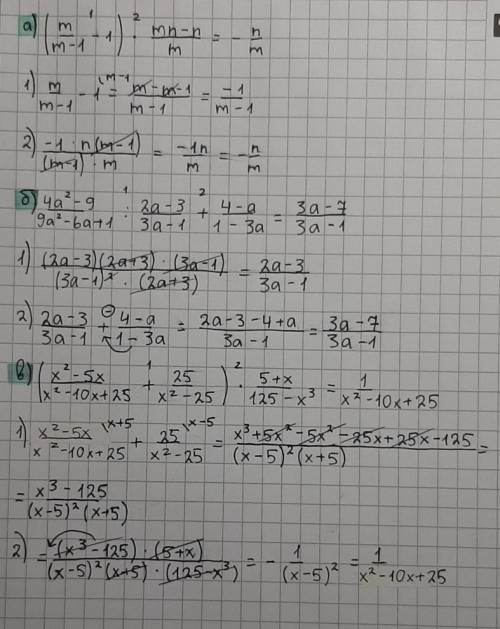 а) (m/(m-1) - 1) · (mn-n)/m = - n/m
1) m/(m-1) - 1 = (m-m-1)/(m-1) = -1/(m-1)
2) (-1 · n(m-1))/((m-1) · m) = -1n/m = - n/m
б) (4a²-9)/(9a²-6a+1) : (2a-3)/(3a-1) + (4-a)/(1-3a) = (3a-7)/(3a-1)
1) ((2a-3)(2a+3) · (3a-1))/((3a-1)² · (2a+3)) = (2a-3)/(3a-1)
2) (2a-3)/(3a-1) + (4-a)/(1-3a) = (2a-3-4+a)/(3a-1) = (3a-7)/(3a-1)
в) ((x²-5x)/(x²-10x+25) + 25/(x²-25)) · (5+x)/(125-x³) = 1/(x²-10x+25)
1) (x²-5x)/(x²-10x+25) \x+5 + 25/(x²-25) \x-5 = (x³+5x²-5x²-25x+25x-125)/((x-5)²(x+5)) =
= (x³-125)/((x-5)²(x+5))
2) = ((x³-125) · (5+x))/((x-5)²(x+5) · (125-x³)) = - 1/(x-5)² = 1/(x²-10x+25)